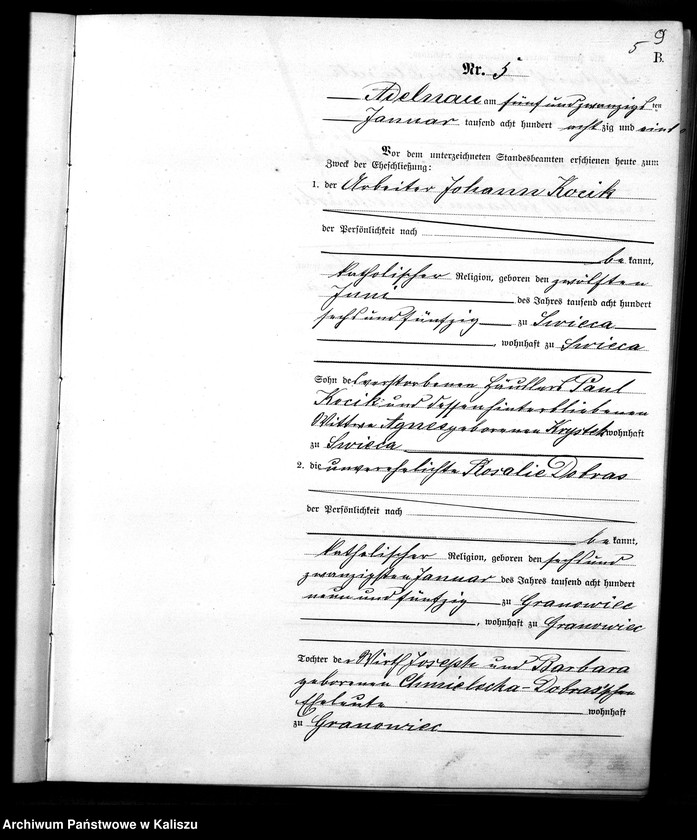 9
5
B.
Nr. 5
Adelnau am fünf und zwanzigsten
Januar tausend acht hundert achtzig und
Vor dem unterzeichneten Standesbeamten erschienen heute zum
Zweck der Eheschließung:
1. der Arbeiter Johann Kocik
der Persönlichkeit nach
bekannt,
katholischer Religion, geboren den zwölften
Juni des Jahres tausend acht hundert
sechs und fünfzig zu Swieca
, wohnhaft zu Swieca
Sohn des verstorbenen Häuslers Paul
Kocik und dessen hinterbliebenen
Wittwe Agnes geborenen Krystek wohnhaft
zu Swieca
2. die unverehelichte Rosalie Dobras
der Persönlichkeit nach
bekannt,
katholischer Religion, geboren den sechs und
zwanzigsten Januar des Jahres tausend acht hundert
neun und fünfzig zu Granowiec
, wohnhaft zu Granowiec
Tochter der Wirth Joseph und Barbara
geborenen Dobras'schen
Eheleute wohnhaft
zu Granowiec
Archiwum Państwowe w Kaliszu